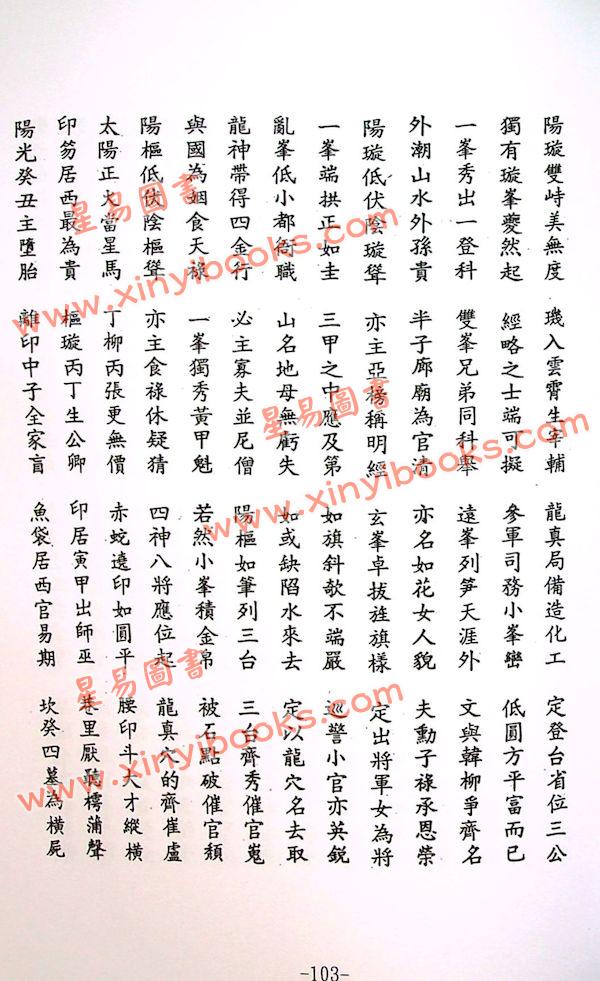 陽璇雙峙美無度 璣入雲霄生宰輔 龍真局備造化工 定登台省位三公
獨有璇峯夔然起 經略之士端可擬 參軍司務小峯巒 低圓方平富而已
一峯秀出一登科 雙峯兄弟同科舉 遠峯列笋天涯外 文與韓柳爭齊名
外潮山水外孫貴 半子廊廟為官清 亦名如花女人貌 夫勳子祿承恩榮
陽璇低伏陰璇聳 亦主亞榜稱明經 玄峯卓拔旌旗樣 定出將軍女為將
一峯端拱正如圭 三甲之中應及第 如旗斜欹不端嚴 巡警小官亦英銳
亂峯低小都衙職 山名地母無虧失 如或缺陷水來去 定以龍穴名去取
龍神帶得四金行 必主寡夫並尼僧 陽樞如筆列三台 三台齊秀催官嵬
與國為姻食天祿 一峯獨秀黃甲魁 若然小峯積金帛 被石點破催官頹
陽樞低伏陰樞聳 亦主食祿休疑猜 四神八將應位起 龍真穴的齊崔盧
太陽正大當星馬 丁柳丙張更無價 赤蛇遶印如圓平 腰印斗大才縱橫
印笏居西最為貴 樞璇丙丁生公卿 印居寅甲出師巫 巷里厭聽樗蒲聲
陽光癸丑主墮胎 離印中子全家盲 魚袋居西官易期 坎癸四墓為橫屍
星易圖書
www.xinyibooks.com
星易圖書
www.xinyibooks.com
星易圖書
www.xinyibooks.com
-103-